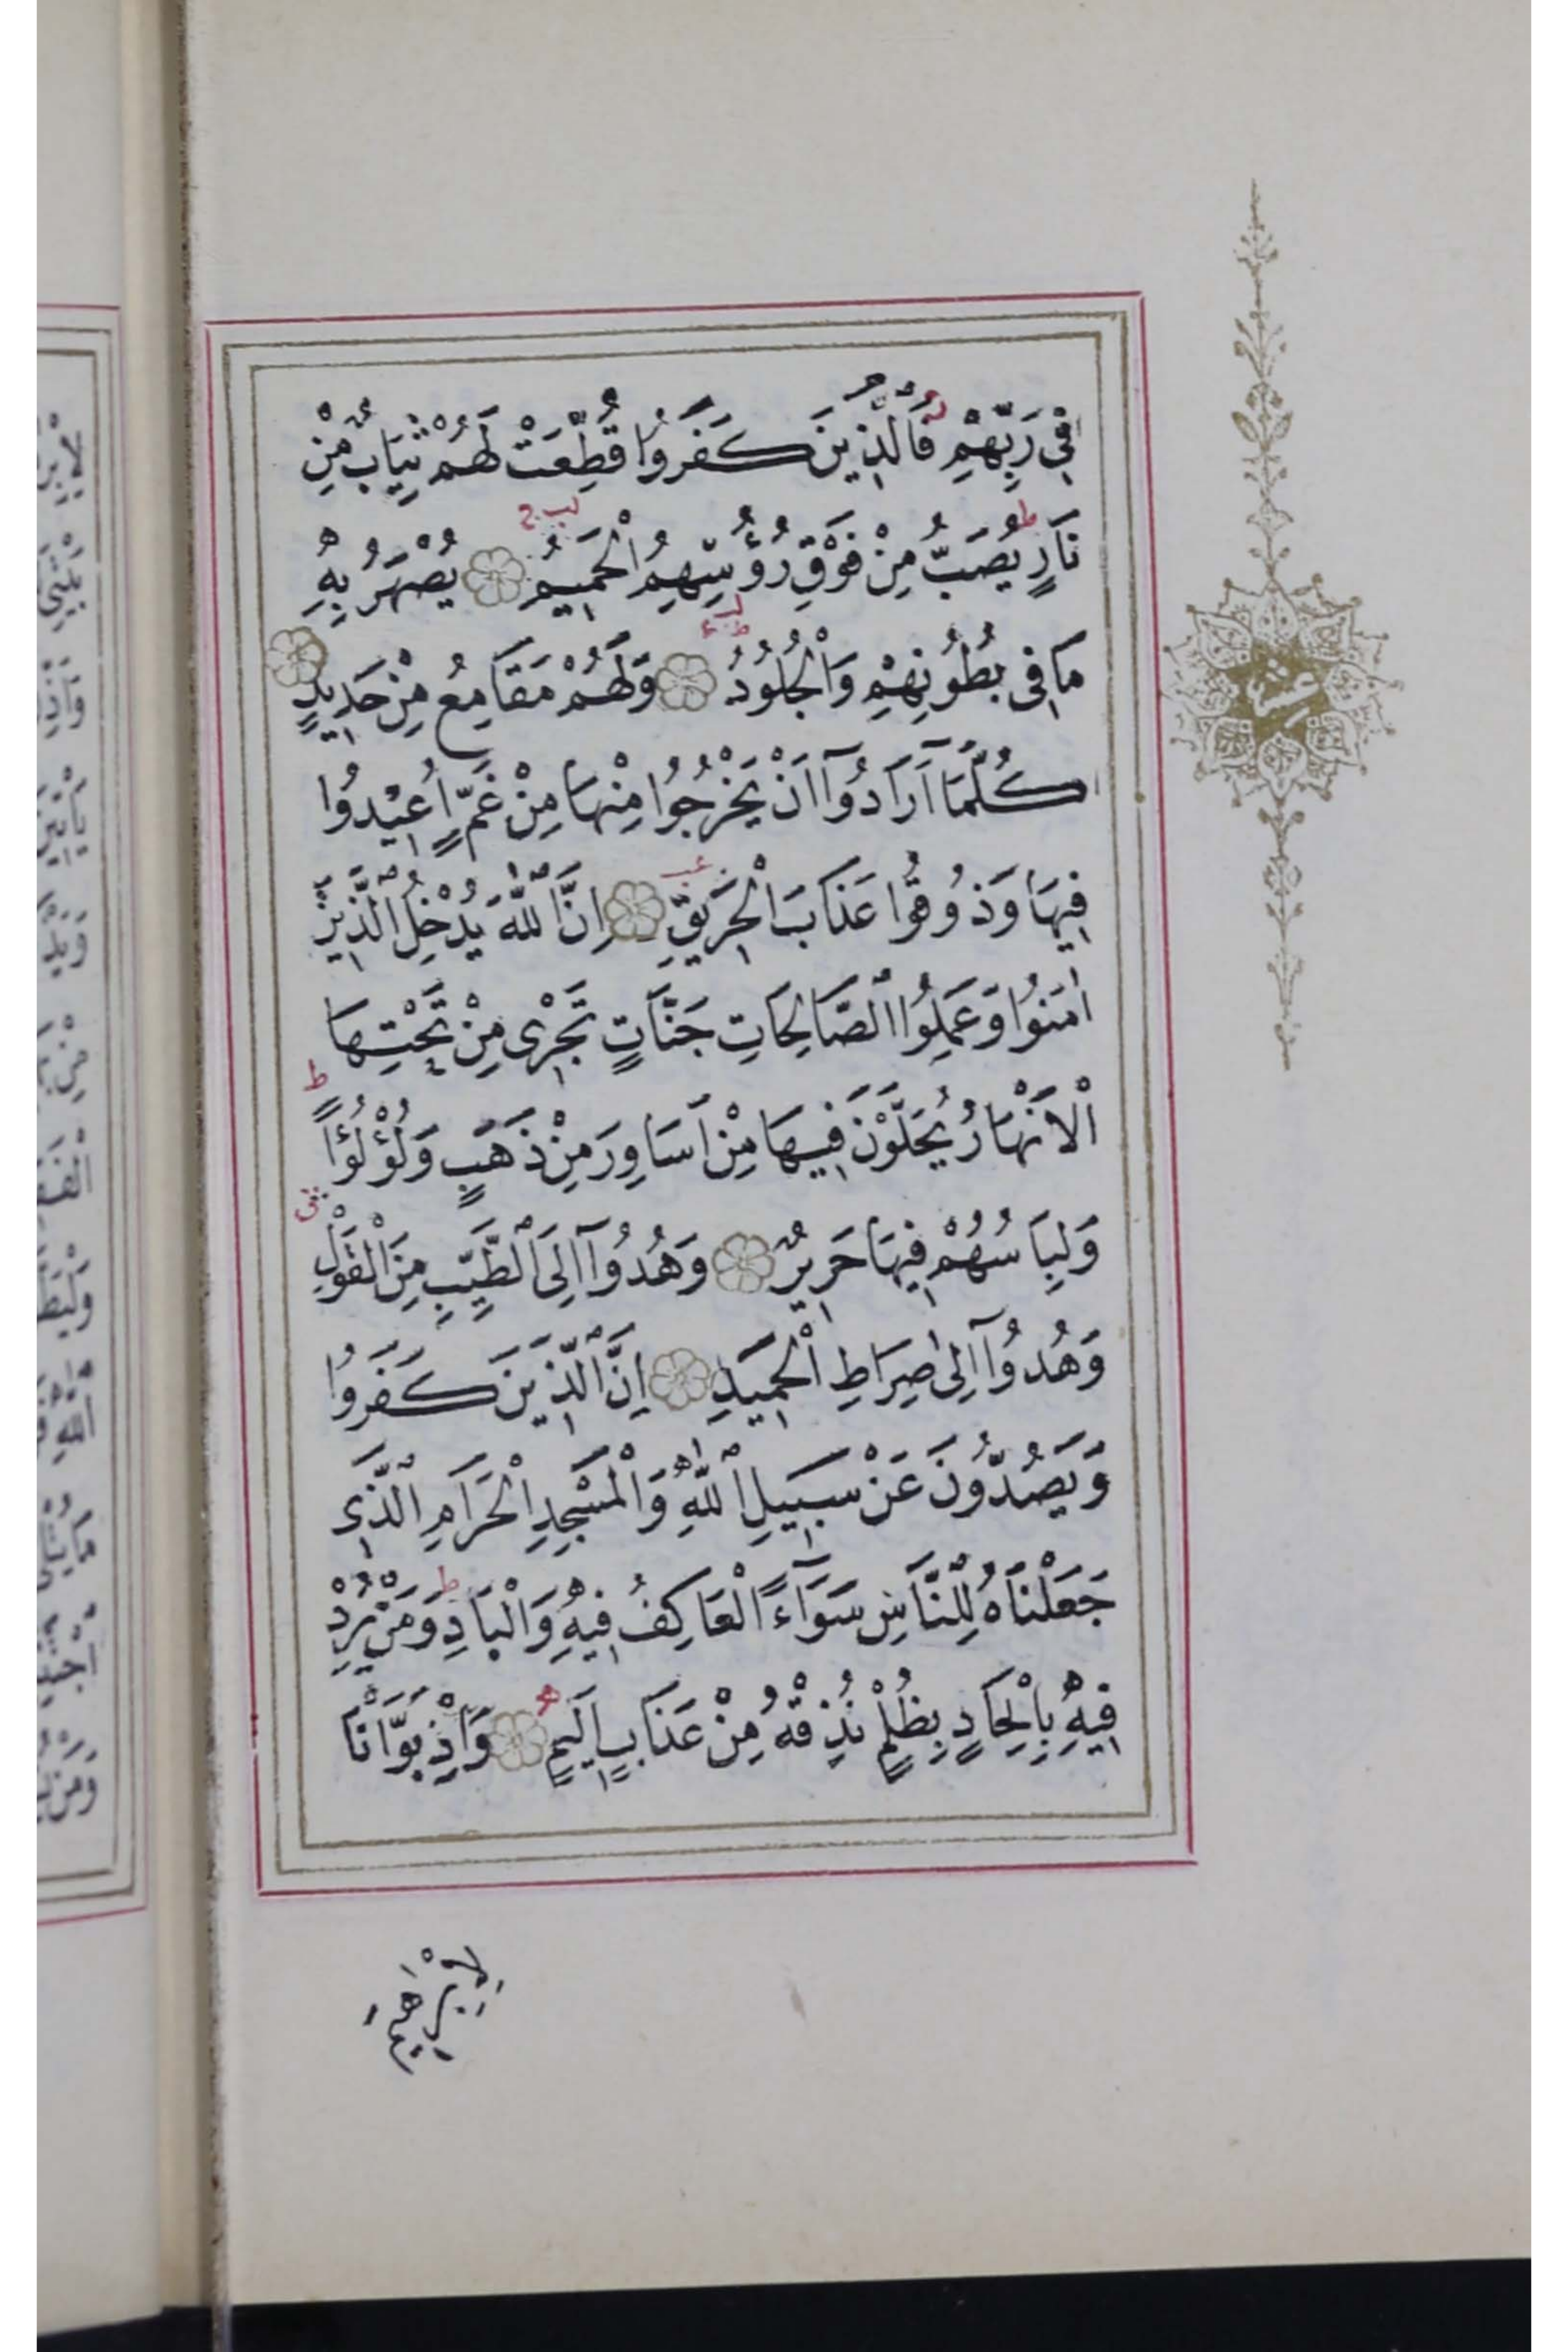 فِى رَبِّهِمْ فَالَّذِينَ كَفَرُوا قُطِّعَتْ لَهُمْ ثِيَابٌ مِنْ
نَارٍ يُصَبُّ مِنْ فَوْقِ رُؤُسِهِمُ الْحَمِيمُ يُصْهَرُ بِهِ
مَا فِى بُطُونِهِمْ وَالْجُلُودُ وَلَهُمْ مَقَامِعُ مِنْ حَدِيدٍ
كُلَّمَآ اَرَادُوٓا اَنْ يَخْرُجُوا مِنْهَا مِنْ غَمٍّ اُعِيْدُوا
فِيهَا وَذُوقُوا عَذَابَ الْحَرِيقِ اِنَّ اللّٰهَ يُدْخِلُ الَّذِينَ
اٰمَنُوا وَعَمِلُوا الصَّالِحَاتِ جَنَّاتٍ تَجْرِى مِنْ تَحْتِهَا
الْاَنْهَارُ يُحَلَّوْنَ فِيهَا مِنْ اَسَاوِرَ مِنْ ذَهَبٍ وَلُؤْلُؤًا
وَلِبَاسُهُمْ فِيهَا حَرِيرٌ وَهُدُوٓا اِلَى الطَّيِّبِ مِنَ الْقَوْلِ
وَهُدُوٓا اِلٰى صِرَاطِ الْحَمِيدِ اِنَّ الَّذِينَ كَفَرُوا
وَيَصُدُّونَ عَنْ سَبِيلِ اللّٰهِ وَالْمَسْجِدِ الْحَرَامِ الَّذِى
جَعَلْنَاهُ لِلنَّاسِ سَوَآءً الْعَاكِفُ فِيهِ وَالْبَادِ وَمَنْ يُرِدْ
فِيهِ بِاِلْحَادٍ بِظُلْمٍ نُذِقْهُ مِنْ عَذَابٍ اَلِيمٍ وَاِذْ بَوَّاْنَا
عشر
لِاِبْرٰهِيمَ